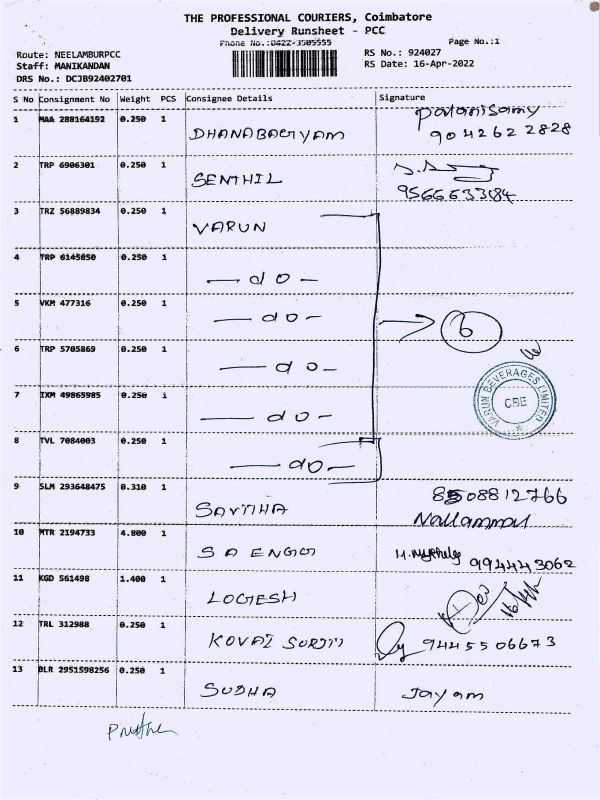 THE PROFESSIONAL COURIERS, Coimbatore
Delivery Runsheet - PCC
Phone No.:0422-3505555
Page No.:1
Route: NEELAMBURPCC
Staff: MANIKANDAN
DRS No.: DCJB92402701
RS No.: 924027
RS Date: 16-Apr-2022
S No Consignment No Weight PCS Consignee Details Signature
1 MAA 288164192 0.250 1 DHANABAGYAM Palanisamy
9042622828
2 TRP 6906301 0.250 1 SENTHIL
3 TRZ 56889834 0.250 1 VARUN
4 TRP 6145850 0.250 1 — do —
5 VKM 477316 0.250 1 — do —
6 TRP 5705869 0.250 1 — do —
6
7 IXM 49865985 0.250 1 — do —
VARUN BEVERAGES LIMITED
CBE
8 TVL 7084003 0.250 1 — do —
9 SLM 293648475 0.310 1 8508812766
Nallammal
10 MTR 2194733 4.800 1 994443062
11 KGD 561498 1.400 1 LOGESH
12 TRL 312988 0.250 1 KOVAI 9445506673
13 BLR 2951598256 0.250 1 SUDHA Jayam